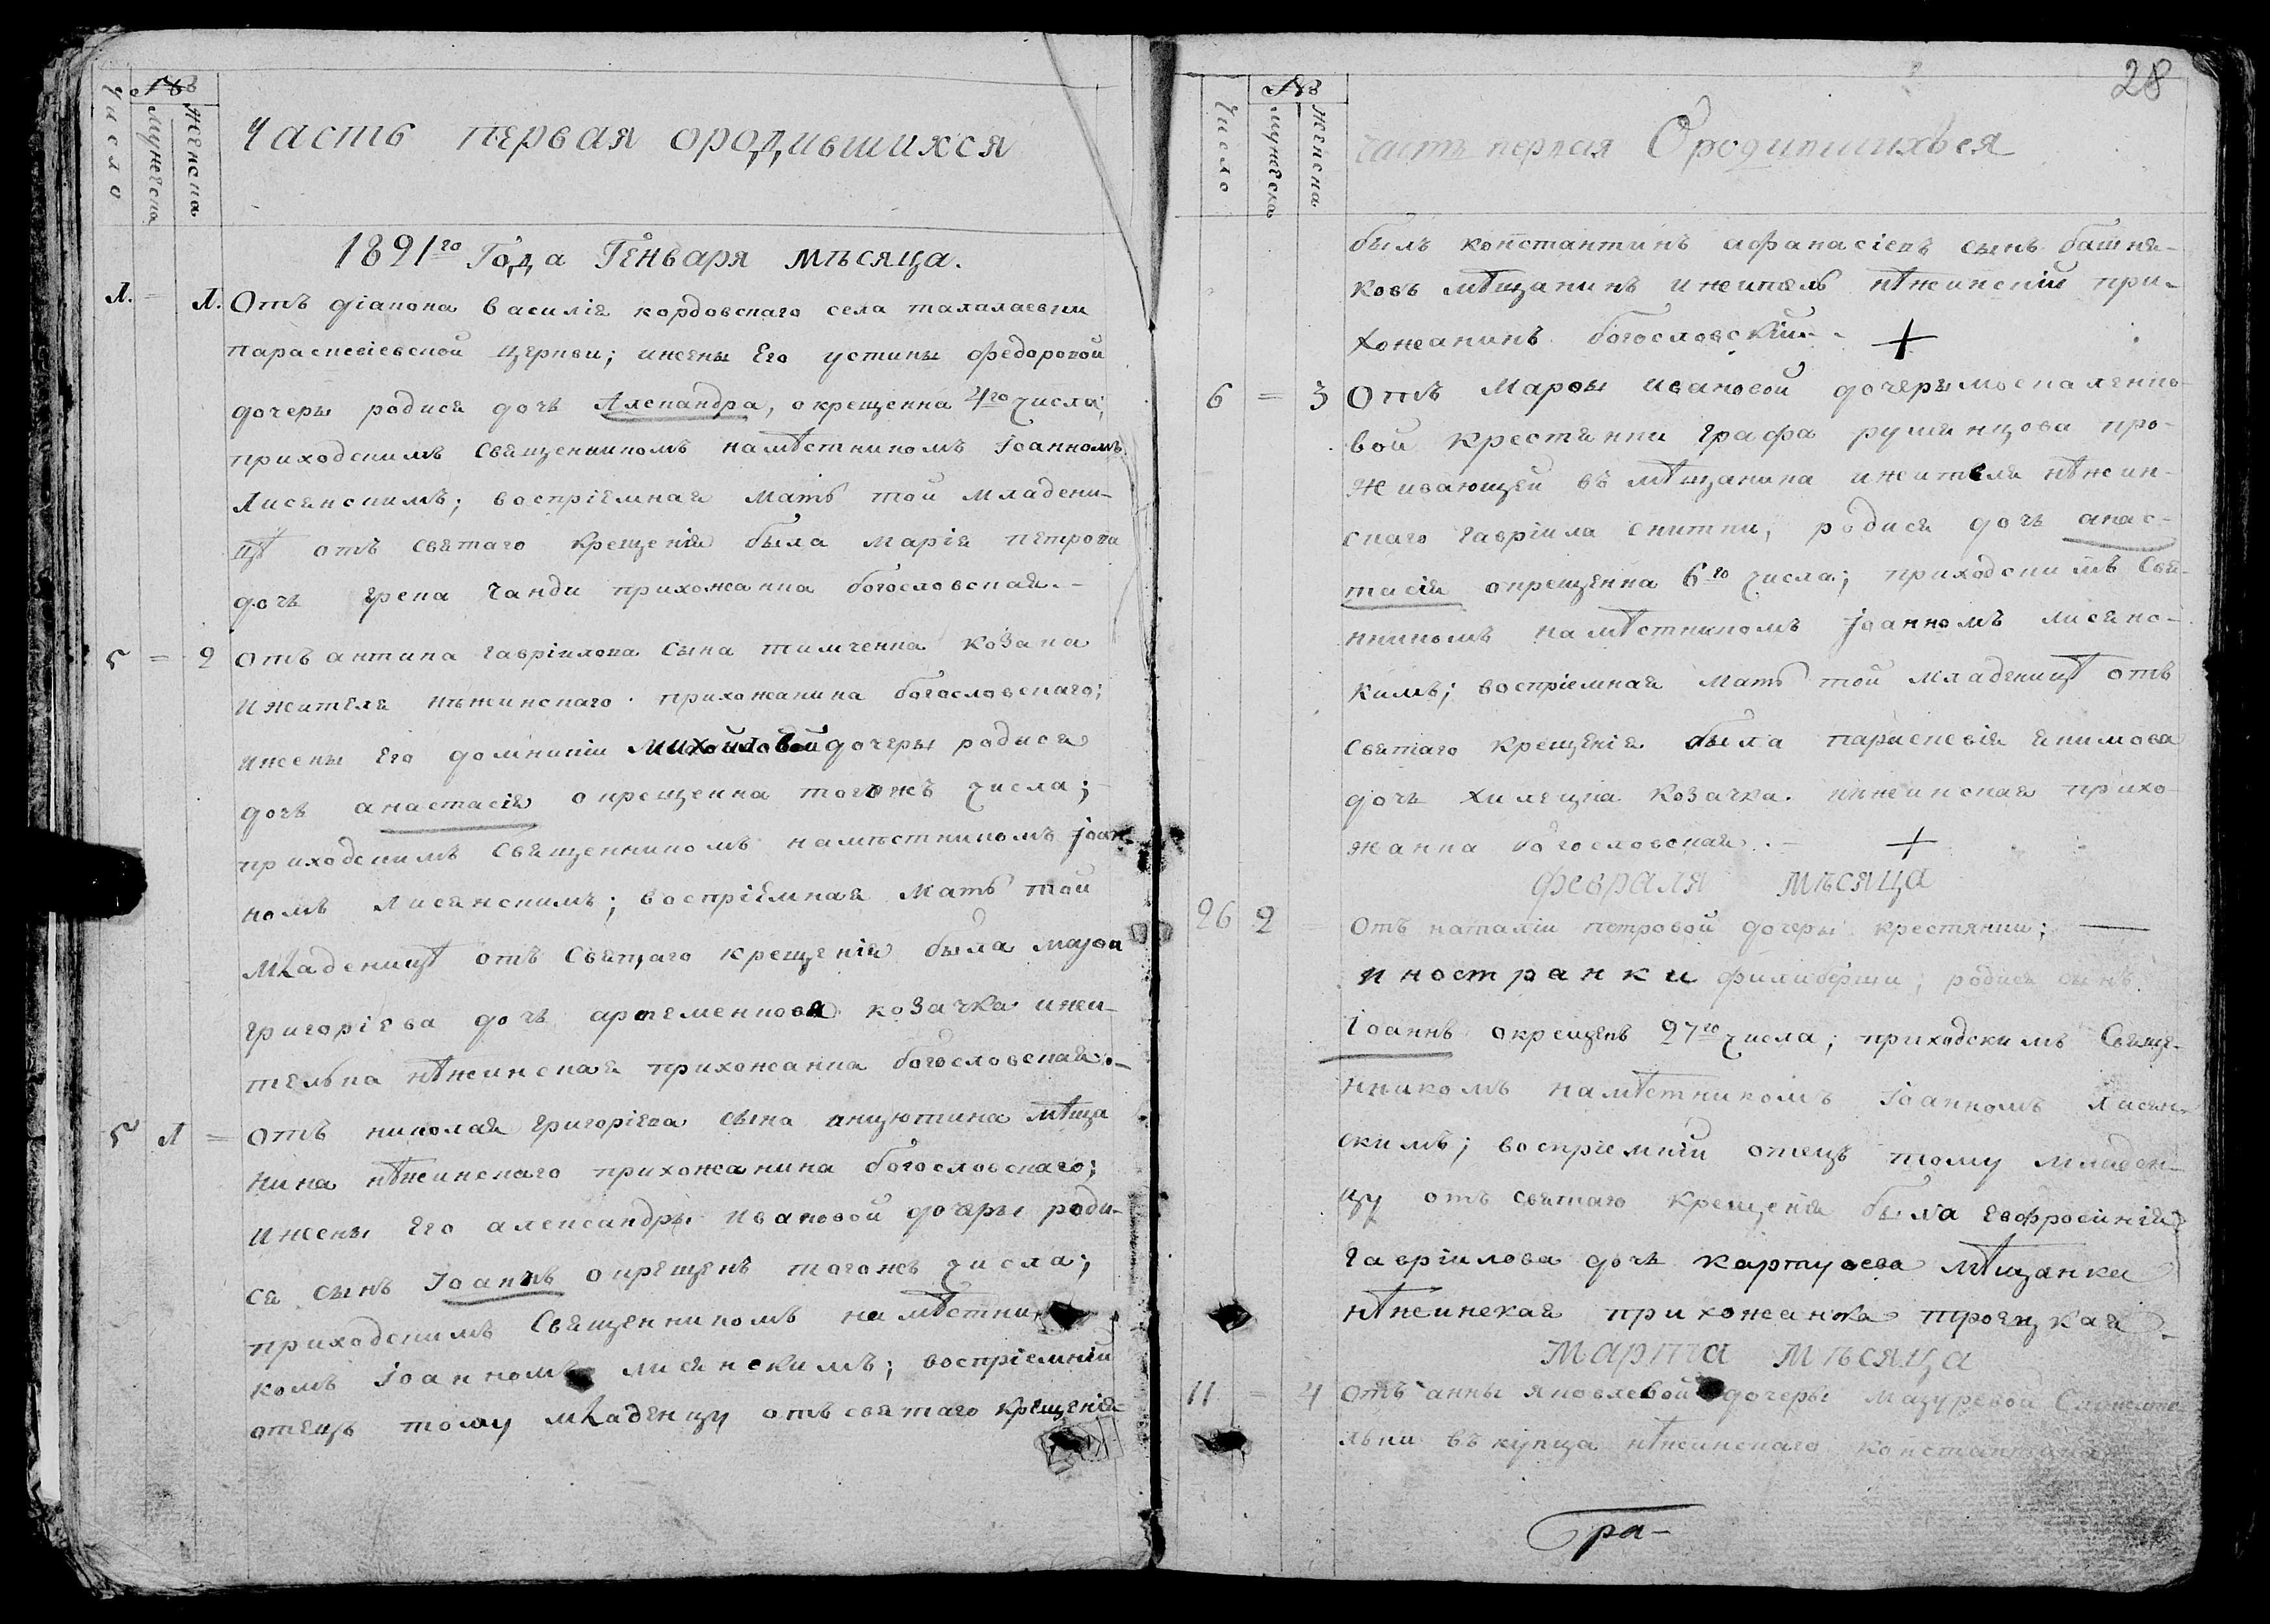 №в
Число
мужеска
женска
Часть первая ородившихся
1821го Года Генваря мѣсяца.
1. = 1. Отъ діакона василія кордовскаго села талалаевки
параскевіевской церкви; ижены Его устины федоровой
дочеры родися дочь Александра, окрещенна 4го числа;
приходскимъ священникомъ намѣстникомъ Іоанномъ
Лисянскимъ; воспріемная мать той младени-
цѣ отъ святаго крещенія была марія петрова
дочь грека чанди прихожанка богословская.-
5 = 2 отъ антипа гавріилова сына тимченка козака
ижителя нѣжинскаго прихожанина богословскаго;
ижены Его домникіи михайловой дочеры родися
дочь анастасія окрещенна тогожъ числа;
приходскимъ священникомъ намѣстникомъ Іоан-
номъ лисянскимъ; воспріемная мать той
младеницѣ отъ святаго крещенія была марѳа
григоріева дочь артеменкова козачка ижи-
телька нѣжинская прихожанка богословская.-
5 1 = отъ николая григоріева сына анцютина мѣща
нина нѣжинскаго прихожанина богословскаго;
ижены Его александры ивановой дочеры роди-
ся сынъ Іоаннъ окрещенъ тогожъ числа;
приходскимъ священникомъ намѣстни-
комъ Іоанномъ лисянскимъ; воспріемній
отецъ тому младенцу отъ святаго крещенія
28
№в
Число
мужеска
женска
часть первая Ородившихъся
былъ константинъ афанасіевъ сынъ башня-
ковъ мѣщанинъ ижитель нѣжинскій при-
хожанинъ богословскій.- +
6 = 3 Отъ Марѳы ивановой дочерымоскаленко-
вой крестянки графа румянцова про-
живающей въ мѣщанина ижителя нѣжин-
скаго гавріила снитки, родися дочь анас-
тасія окрещенна 6го числа; приходскимъ свя-
нникомъ намѣстникомъ Іоанномъ лисянс-
кимъ; воспріемная мать той младеницѣ отъ
святаго крещенія была параскевія якимова
дочь хилецка козачка нѣжинская прихо-
жанка богословская.- +
февраля мѣсяца
26 2 = Отъ наталіи петровой дочеры крестянки;
иностранки филиберши, родися сынъ
Іоаннъ окрещенъ 27го числа; приходскимъ Свяще-
нникомъ намѣстникомъ Іоанномъ Лисян-
скимъ; воспріемній отецъ тому младен-
цу отъ святаго крещенія была евфросинія
гавріилова дочь картуоева мѣщанка
нѣжинская прихожанка троецкая.
марта мѣсяца
11 = 4 Отъ анны яковлевой дочеры мазуревой Служите-
льки въ купца нѣжинскаго константина
Гра-